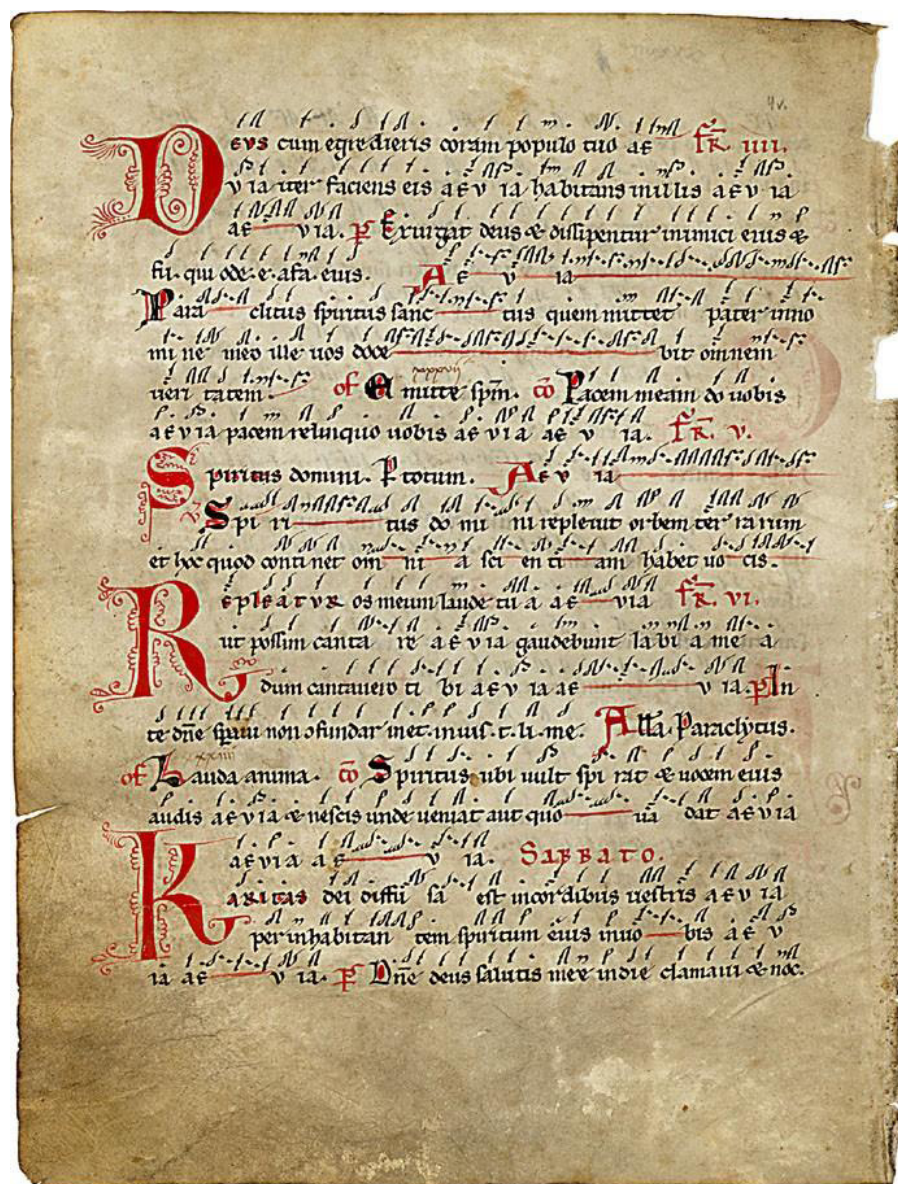 4v.
Deus cum egredieris coram populo tuo ae fr̄ IIII.
v ia iter faciens eis aev ia habitans in illis aev ia
ae v ia. p̄ Exurgat deus & dissipentur inimici eius &
fu. qui ode. e. afa. eius. Ae v ia
Para clitus spiritus sanc tus quem mittet pater in no
mi ne meo ille uos doce bit omnem
veri tatem. of Emitte sp̄m. cō Pacem meam do uobis
aev ia pacem relinquo uobis aev ia ae v ia. fr̄. V.
Spiritus domini. P totum. Ae v ia
v̄ Spi ri tus do mi ni repleuit orbem ter ra rum
et hoc quod conti net om ni a sci en ti am habet uo cis.
Repleatur os meum laude tu a ae via fr̄. VI.
ut possim canta re aev ia gaudebunt la bi a me a
dum cantauero ti bi aev ia ae v ia. p̄ In
te dn̄e speraui non ɔfundar inet. in uis. t. li. me. All̄a. Paraclytus.
of Lauda anima. cō Spiritus ubi uult spi rat & uocem eius
audis aev ia & nescis unde ueniat aut quo ua dat aev ia
aev ia ae v ia. SABBATO.
Karitas dei diffu sa est in cordibus uestris aev ia
per inhabitan tem spiritum eius in uo bis ae v
ia ae v ia. p̄ Dn̄e deus salutis mee in die clamaui & noc.